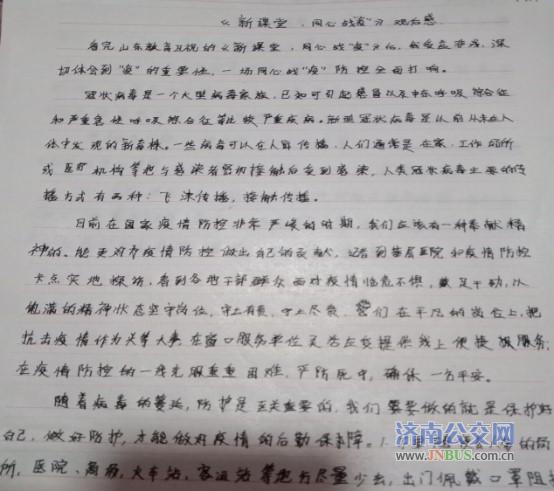 《新课堂,同心战"疫"》观后感
看完山东教育卫视的《新课堂,同心战"疫"》后,我受益匪浅,深
切体会到"疫"的重要性,一场同心战"疫"防控全面打响。
冠状病毒是一个大型病毒家族,已知可引起感冒以及中东呼吸综合征
和严重急性呼吸综合征等较严重疾病。新型冠状病毒是以前从未在人
体中发现的新毒株。一些病毒可以在人际传播,人们通常是在家,工作场所
或医疗机构等地与感染者密切接触后受到感染,人类冠状病毒主要的传
播方式有两种:飞沫传播,接触传播。
目前在国家疫情防控非常严峻的时期,我们应该有一种奉献精
神的。能更好为疫情防控做出自己的贡献,记者到基层医院和疫情防控
卡点实地探访,看到各地干部群众面对疫情临危不惧,戴足干劲,以
饱满的精神状态坚守岗位,守土有责,守土尽责,他们在平凡的岗位上,把
抗击疫情作为头等大事在窗口服务单位
在疫情防控的一线克服重重困难,严防死守,确保一方平安。
随着病毒的蔓延,防护是至关重要的,我们要做的就是保护好
自己,做好防护,才能做好疫情的后勤保障。1.
所,医院、商场,火车站,客运站等地方尽量少去,出门佩戴口罩阻
济南公交网
WWW.JNBUS.COM.CN